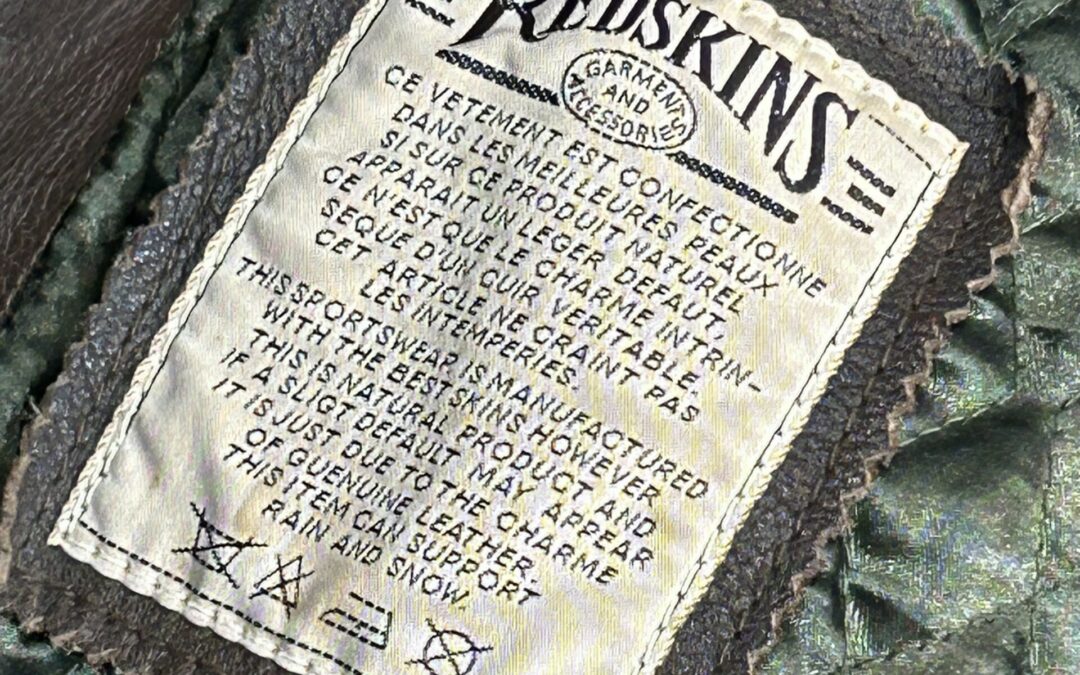 REDSKINS
GARMENTS
AND
ACCESSORIES
CE VETEMENT EST CONFECTIONNE
DANS LES MEILLEURES PEAUX
SI SUR CE PRODUIT NATUREL
APPARAIT UN LEGER DEFAUT,
CE N'EST QUE LE CHARME INTRIN-
SEQUE D'UN CUIR VERITABLE.
CET ARTICLE NE CRAINT PAS
LES INTEMPERIES.
THIS SPORTSWEAR IS MANUFACTURED
WITH THE BEST SKINS HOWEVER
THIS IS NATURAL PRODUCT AND
IF A SLIGT DEFAULT MAY APPEAR
IT IS JUST DUE TO THE CHARME
OF GUENUINE LEATHER.
THIS ITEM CAN SUPPORT
RAIN AND SNOW.